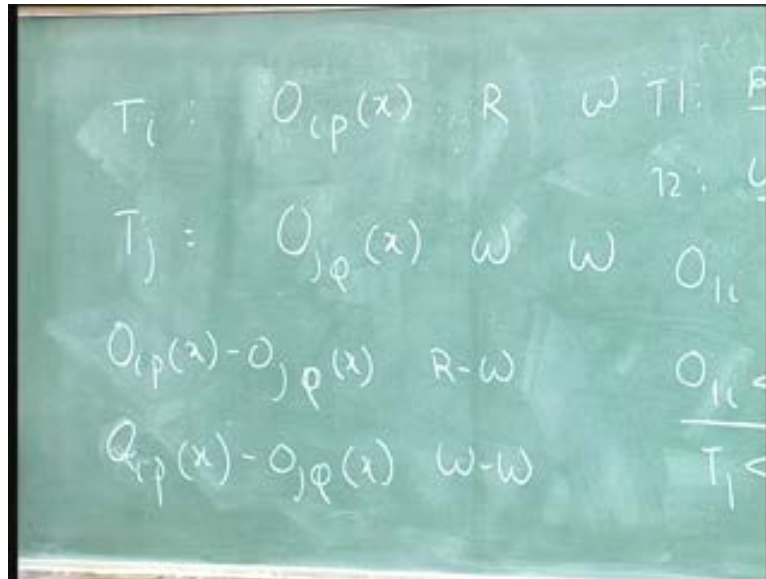 Ti : Oip(x) R W T1: R
T2: W
Tj : Ojq(x) W W O1i
Oip(x)-Ojq(x) R-W O1i <
Oip(x)-Ojq(x) W-W T1 <